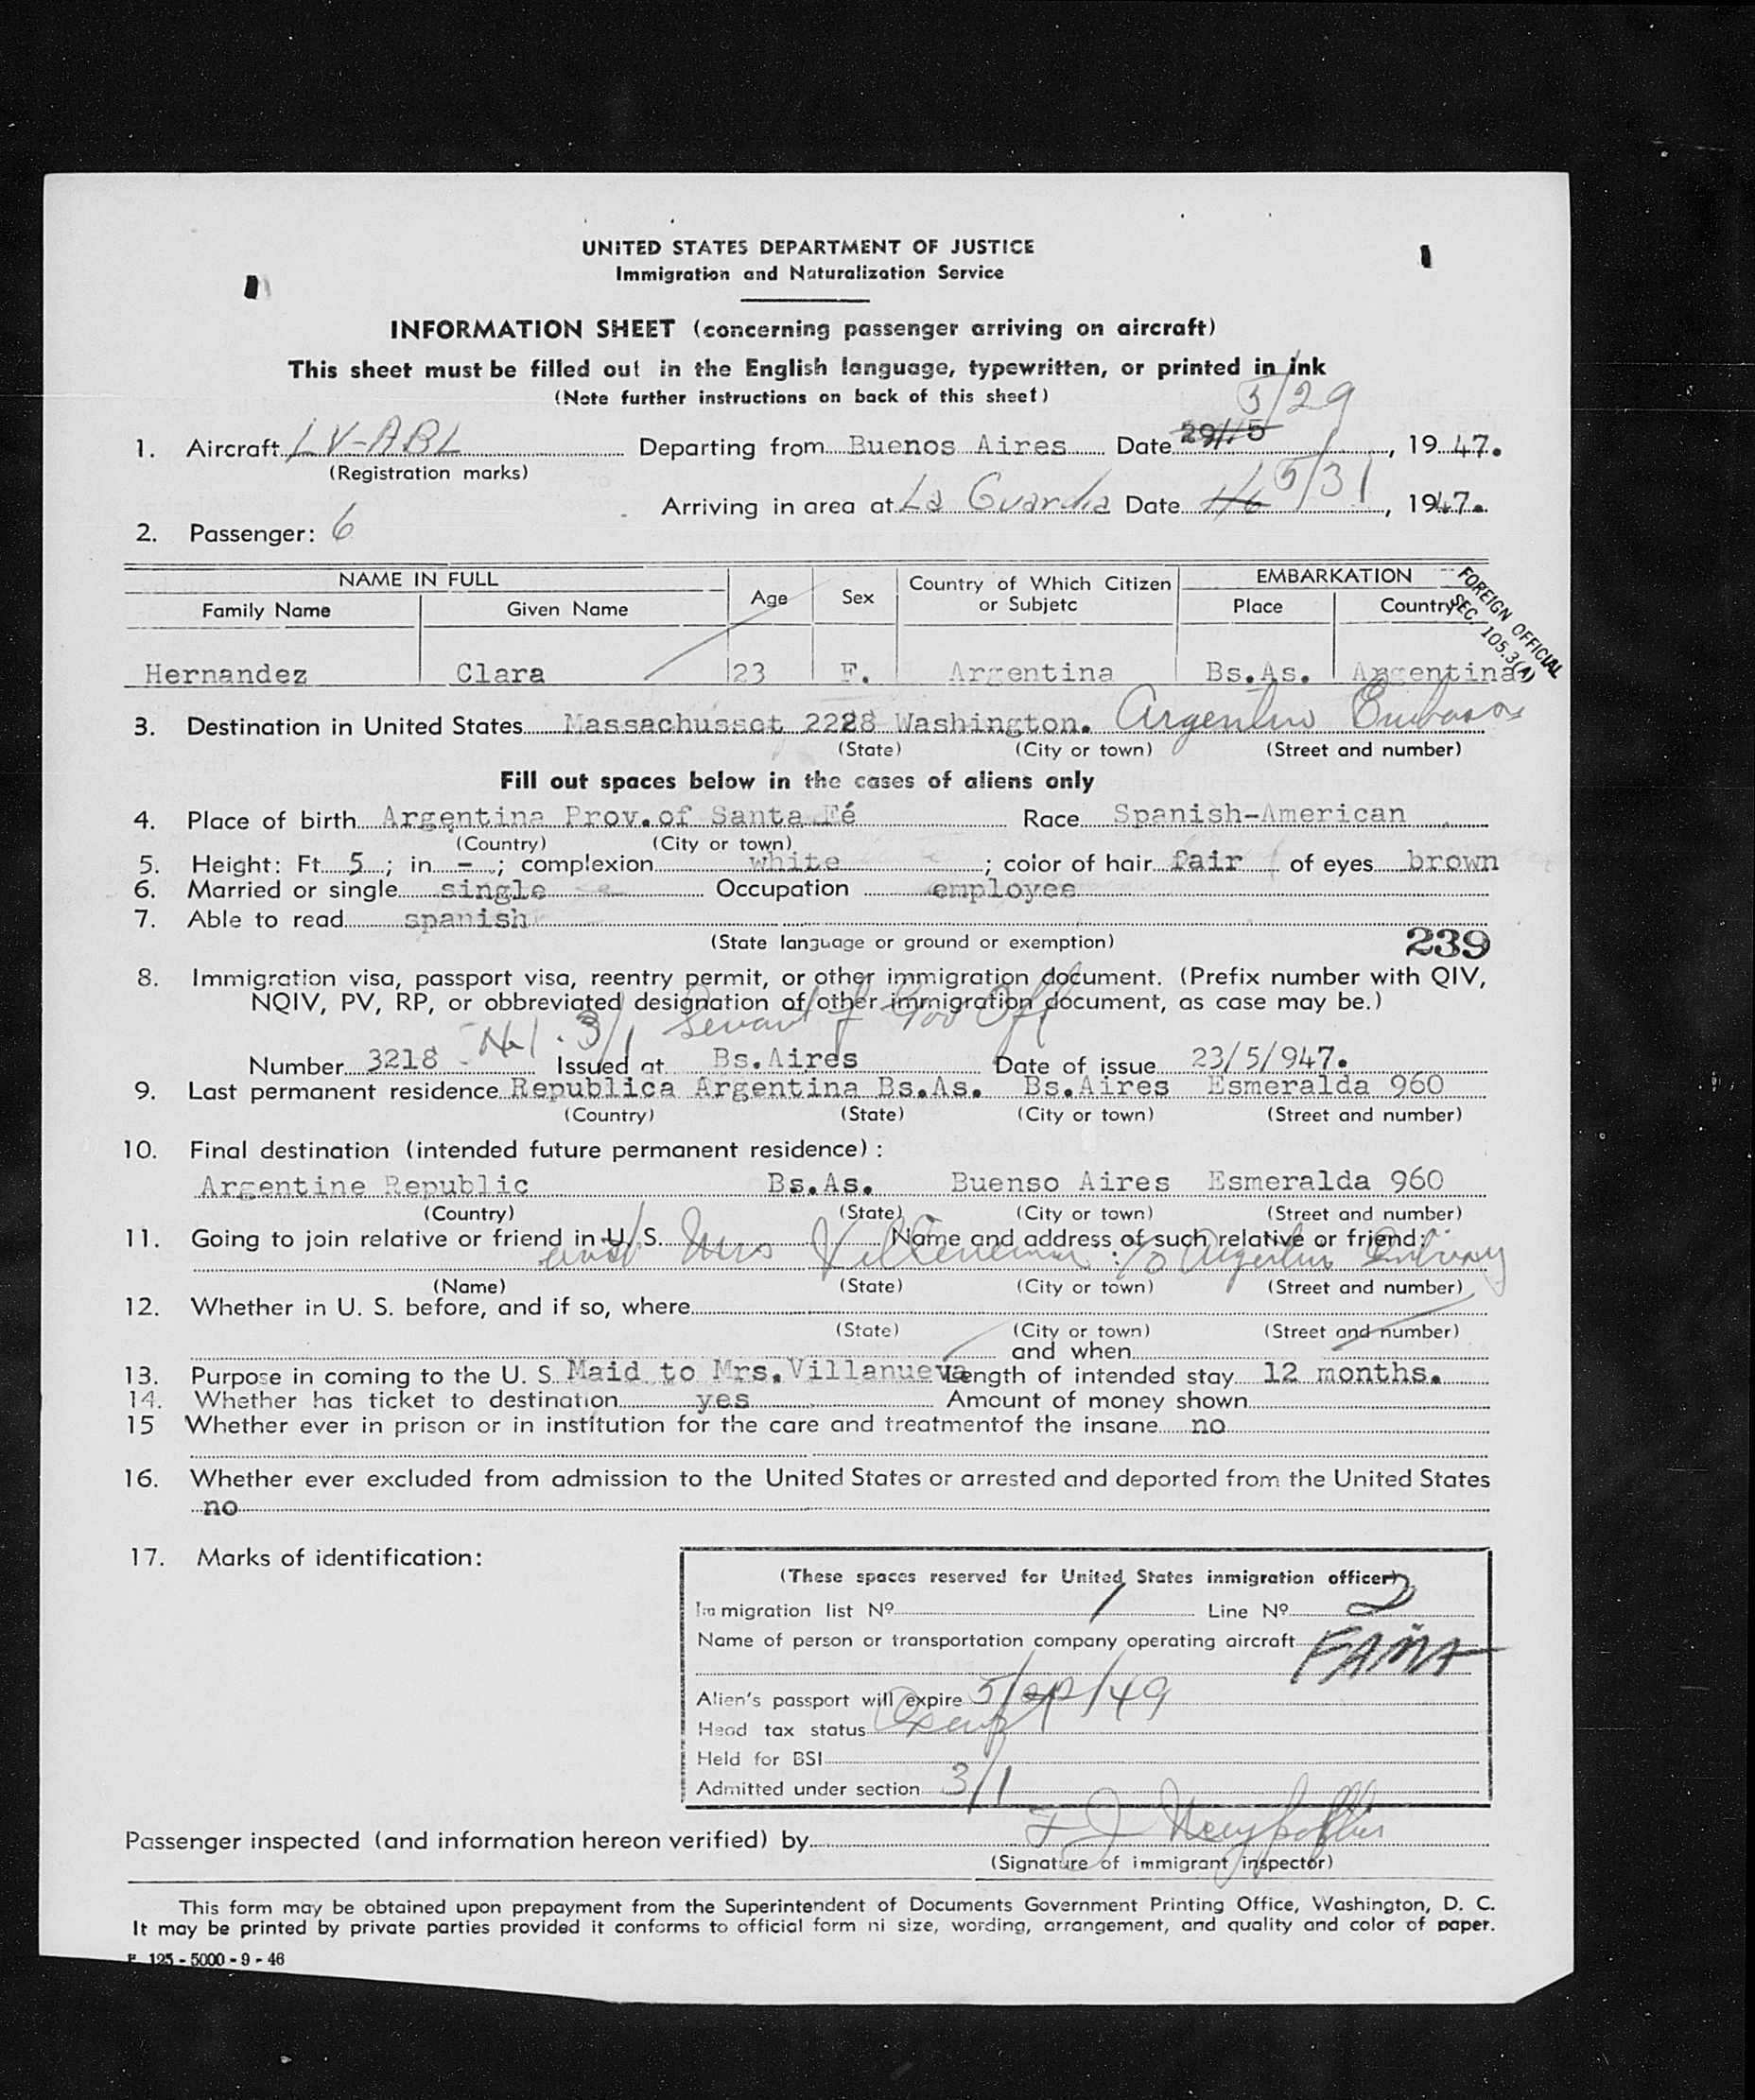 UNITED STATES DEPARTMENT OF JUSTICE
Immigration and Naturalization Service
INFORMATION SHEET (concerning passenger arriving on aircraft)
This sheet must be filled out in the English language, typewritten, or printed in ink
(Note further instructions on back of this sheet)
5/29
1. Aircraft LV-ABL Departing from Buenos Aires Date 29/5, 1947.
(Registration marks)
Arriving in area at La Guardia Date 1/6 5/31, 1947.
2. Passenger: 6
NAME IN FULL Age Sex Country of Which Citizen or Subjetc EMBARKATION
Family Name Given Name Place Country
FOREIGN OFFICIAL
SEC. 105.3(A)
Hernandez Clara 23 F. Argentina Bs.As. Argentina
3. Destination in United States Massachusset 2228 Washington. Argentine Embassy
(State) (City or town) (Street and number)
Fill out spaces below in the cases of aliens only
4. Place of birth Argentina Prov.of Santa Fé Race Spanish-American
(Country) (City or town)
5. Height: Ft. 5; in. -; complexion white; color of hair fair of eyes brown
6. Married or single single Occupation employee
7. Able to read spanish
(State language or ground or exemption)
239
8. Immigration visa, passport visa, reentry permit, or other immigration document. (Prefix number with QIV,
NQIV, PV, RP, or obbreviated designation of other immigration document, as case may be.)
3/1 Servant of Gov Off
Number 3218 Issued at Bs.Aires Date of issue 23/5/947.
9. Last permanent residence Republica Argentina Bs.As. Bs.Aires Esmeralda 960
(Country) (State) (City or town) (Street and number)
10. Final destination (intended future permanent residence):
Argentine Republic Bs.As. Buenso Aires Esmeralda 960
(Country) (State) (City or town) (Street and number)
11. Going to join relative or friend in U. S. Name and address of such relative or friend:
Mrs Villanueva c/o Argentine Embassy
(Name) (State) (City or town) (Street and number)
12. Whether in U. S. before, and if so, where
(State) (City or town) (Street and number)
and when
13. Purpose in coming to the U. S. Maid to Mrs.Villanueva Length of intended stay 12 months.
14. Whether has ticket to destination yes Amount of money shown
15 Whether ever in prison or in institution for the care and treatmentof the insane no
16. Whether ever excluded from admission to the United States or arrested and deported from the United States
no
17. Marks of identification:
(These spaces reserved for United States inmigration officer)
Immigration list Nº 1 Line Nº 2
Name of person or transportation company operating aircraft FAMA
Alien's passport will expire 5/ /49
Head tax status Exempt
Held for BSI
Admitted under section 3/1
Passenger inspected (and information hereon verified) by
(Signature of immigrant inspector)
This form may be obtained upon prepayment from the Superintendent of Documents Government Printing Office, Washington, D. C.
It may be printed by private parties provided it conforms to official form ni size, wording, arrangement, and quality and color of paper.
F 125 - 5000 - 9 - 46